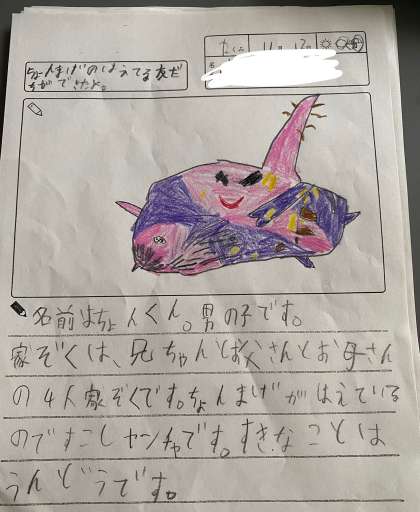 11月12日
ちょんまげのはえてる友だ
ちができたよ。
名前はちょんくん。男の子です。
家ぞくは、兄ちゃんとお父さんとお母さん
の4人家ぞくです。ちょんまげがはえている
のですこしヤンチャです。すきなことは
うんどうです。